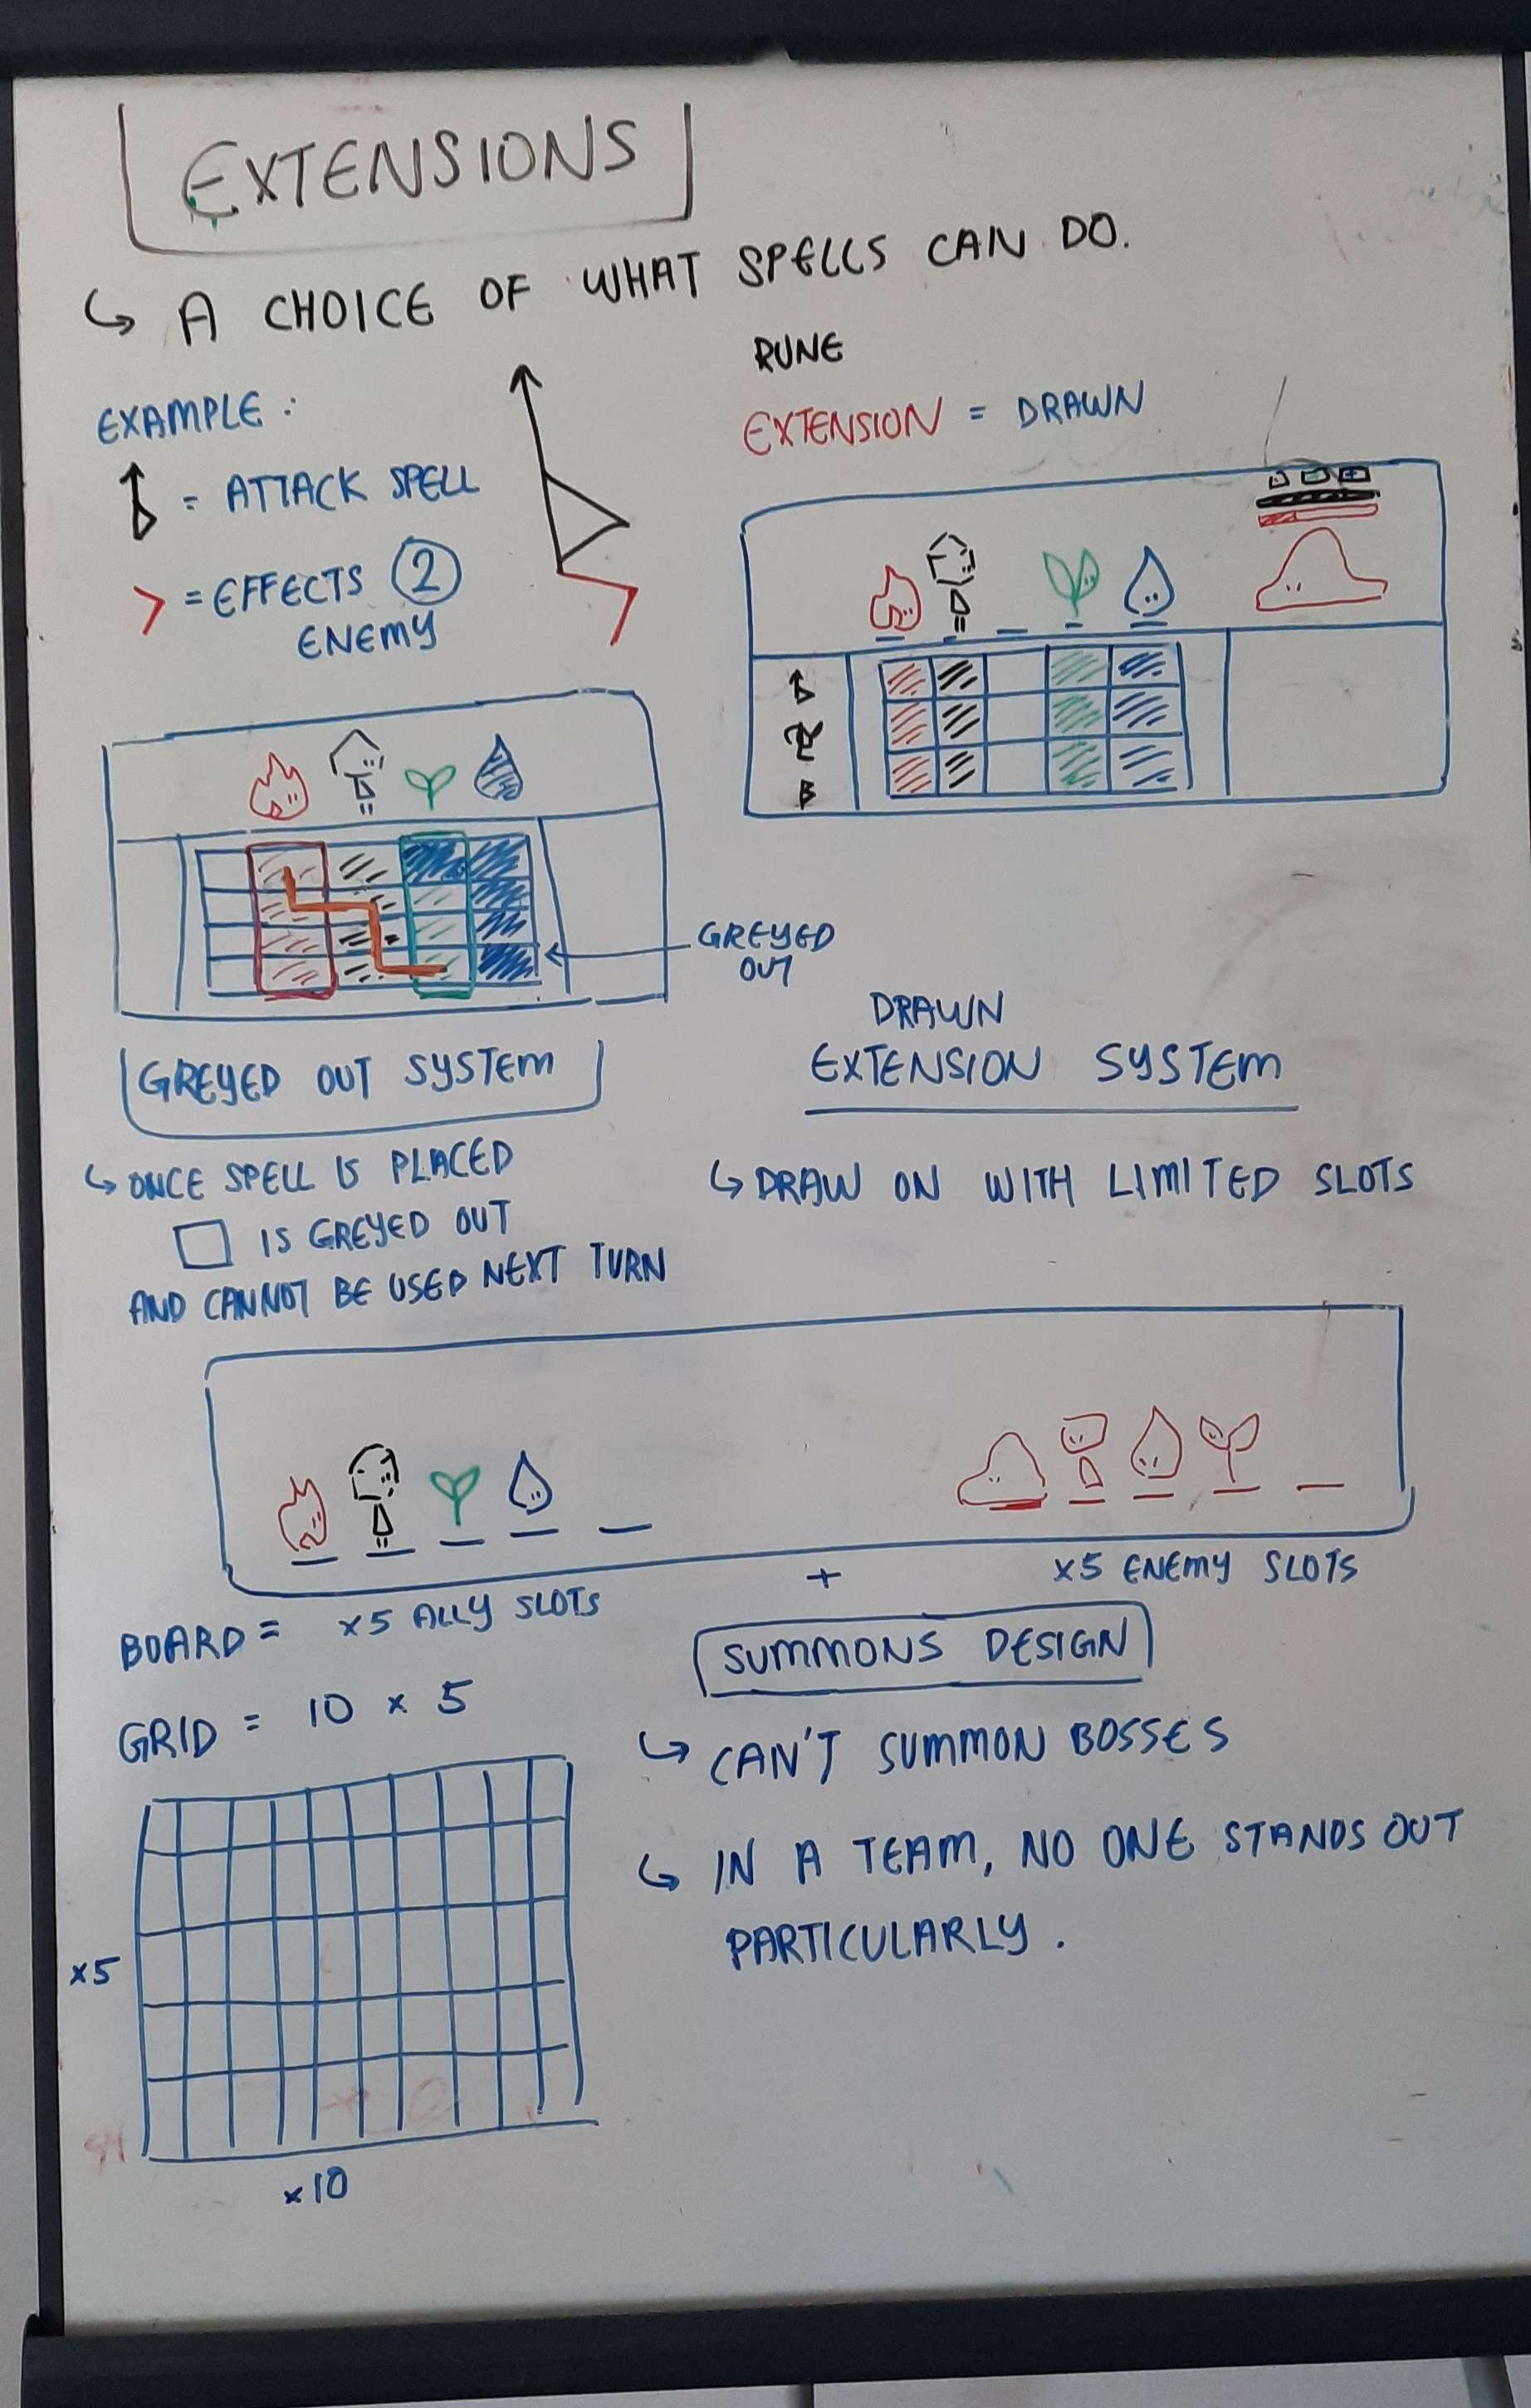 EXTENSIONS
↳ A CHOICE OF WHAT SPELLS CAN DO.
EXAMPLE :
= ATTACK SPELL
> = EFFECTS 2
ENEMY
RUNE
EXTENSION = DRAWN
GREYED
OUT
GREYED OUT SYSTEM
↳ ONCE SPELL IS PLACED
□ IS GREYED OUT
AND CANNOT BE USED NEXT TURN
DRAWN
EXTENSION SYSTEM
↳ DRAW ON WITH LIMITED SLOTS
BOARD = x5 ALLY SLOTS + x5 ENEMY SLOTS
GRID = 10 x 5
x5
x10
SUMMONS DESIGN
↳ CAN'T SUMMON BOSSES
↳ IN A TEAM, NO ONE STANDS OUT
PARTICULARLY.